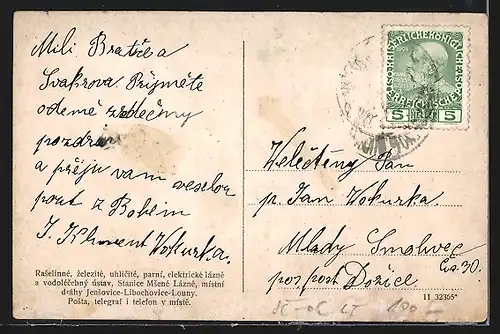 Milí Bratře a
Svakrova. Přijměte
odemě srdečny
pozdrav
a přeju vam veselou
pout z Bohem
J. Kliment Vokurka.
Rašelinné, železité, uhličité, parní, elektrické lázně
a vodoléčebný ústav, Stanice Mšené Lázně, místní
dráhy Jenšovice-Libochovice-Louny.
Pošta, telegraf i telefon v místě.
5 HELLER 5
Velectěny Pan
p. Jan Vokurka
Mlady Smolivec
čís 30.
pospošt Dožice
100
11 32365*